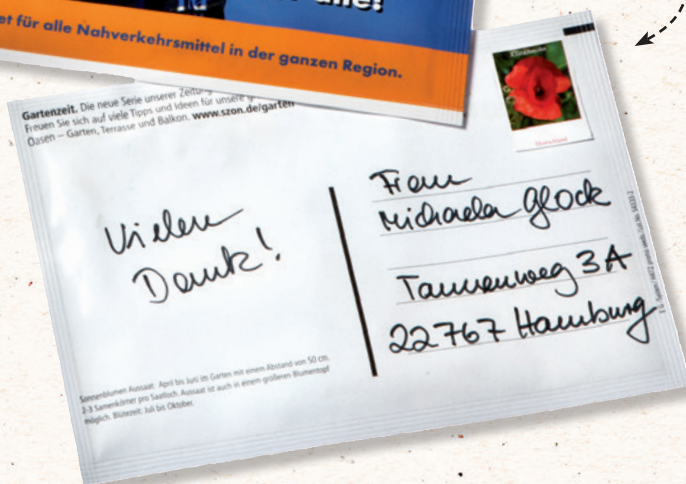 alle!
et für alle Nahverkehrsmittel in der ganzen Region.
Gartenzeit. Die neue Serie unserer Zeitung
Freuen Sie sich auf viele Tipps und Ideen für unsere
Oasen – Garten, Terrasse und Balkon. www.szon.de/garten
Deutschland
Vielen
Dank!
Frau
Michaela Glock
Tannenweg 3A
22767 Hamburg
Sonnenblumen Aussaat: April bis Juni im Garten mit einem Abstand von 50 cm.
2-3 Samenkörner pro Saatloch. Aussaat ist auch in einem größeren Blumentopf
möglich. Blütezeit: Juli bis Oktober.